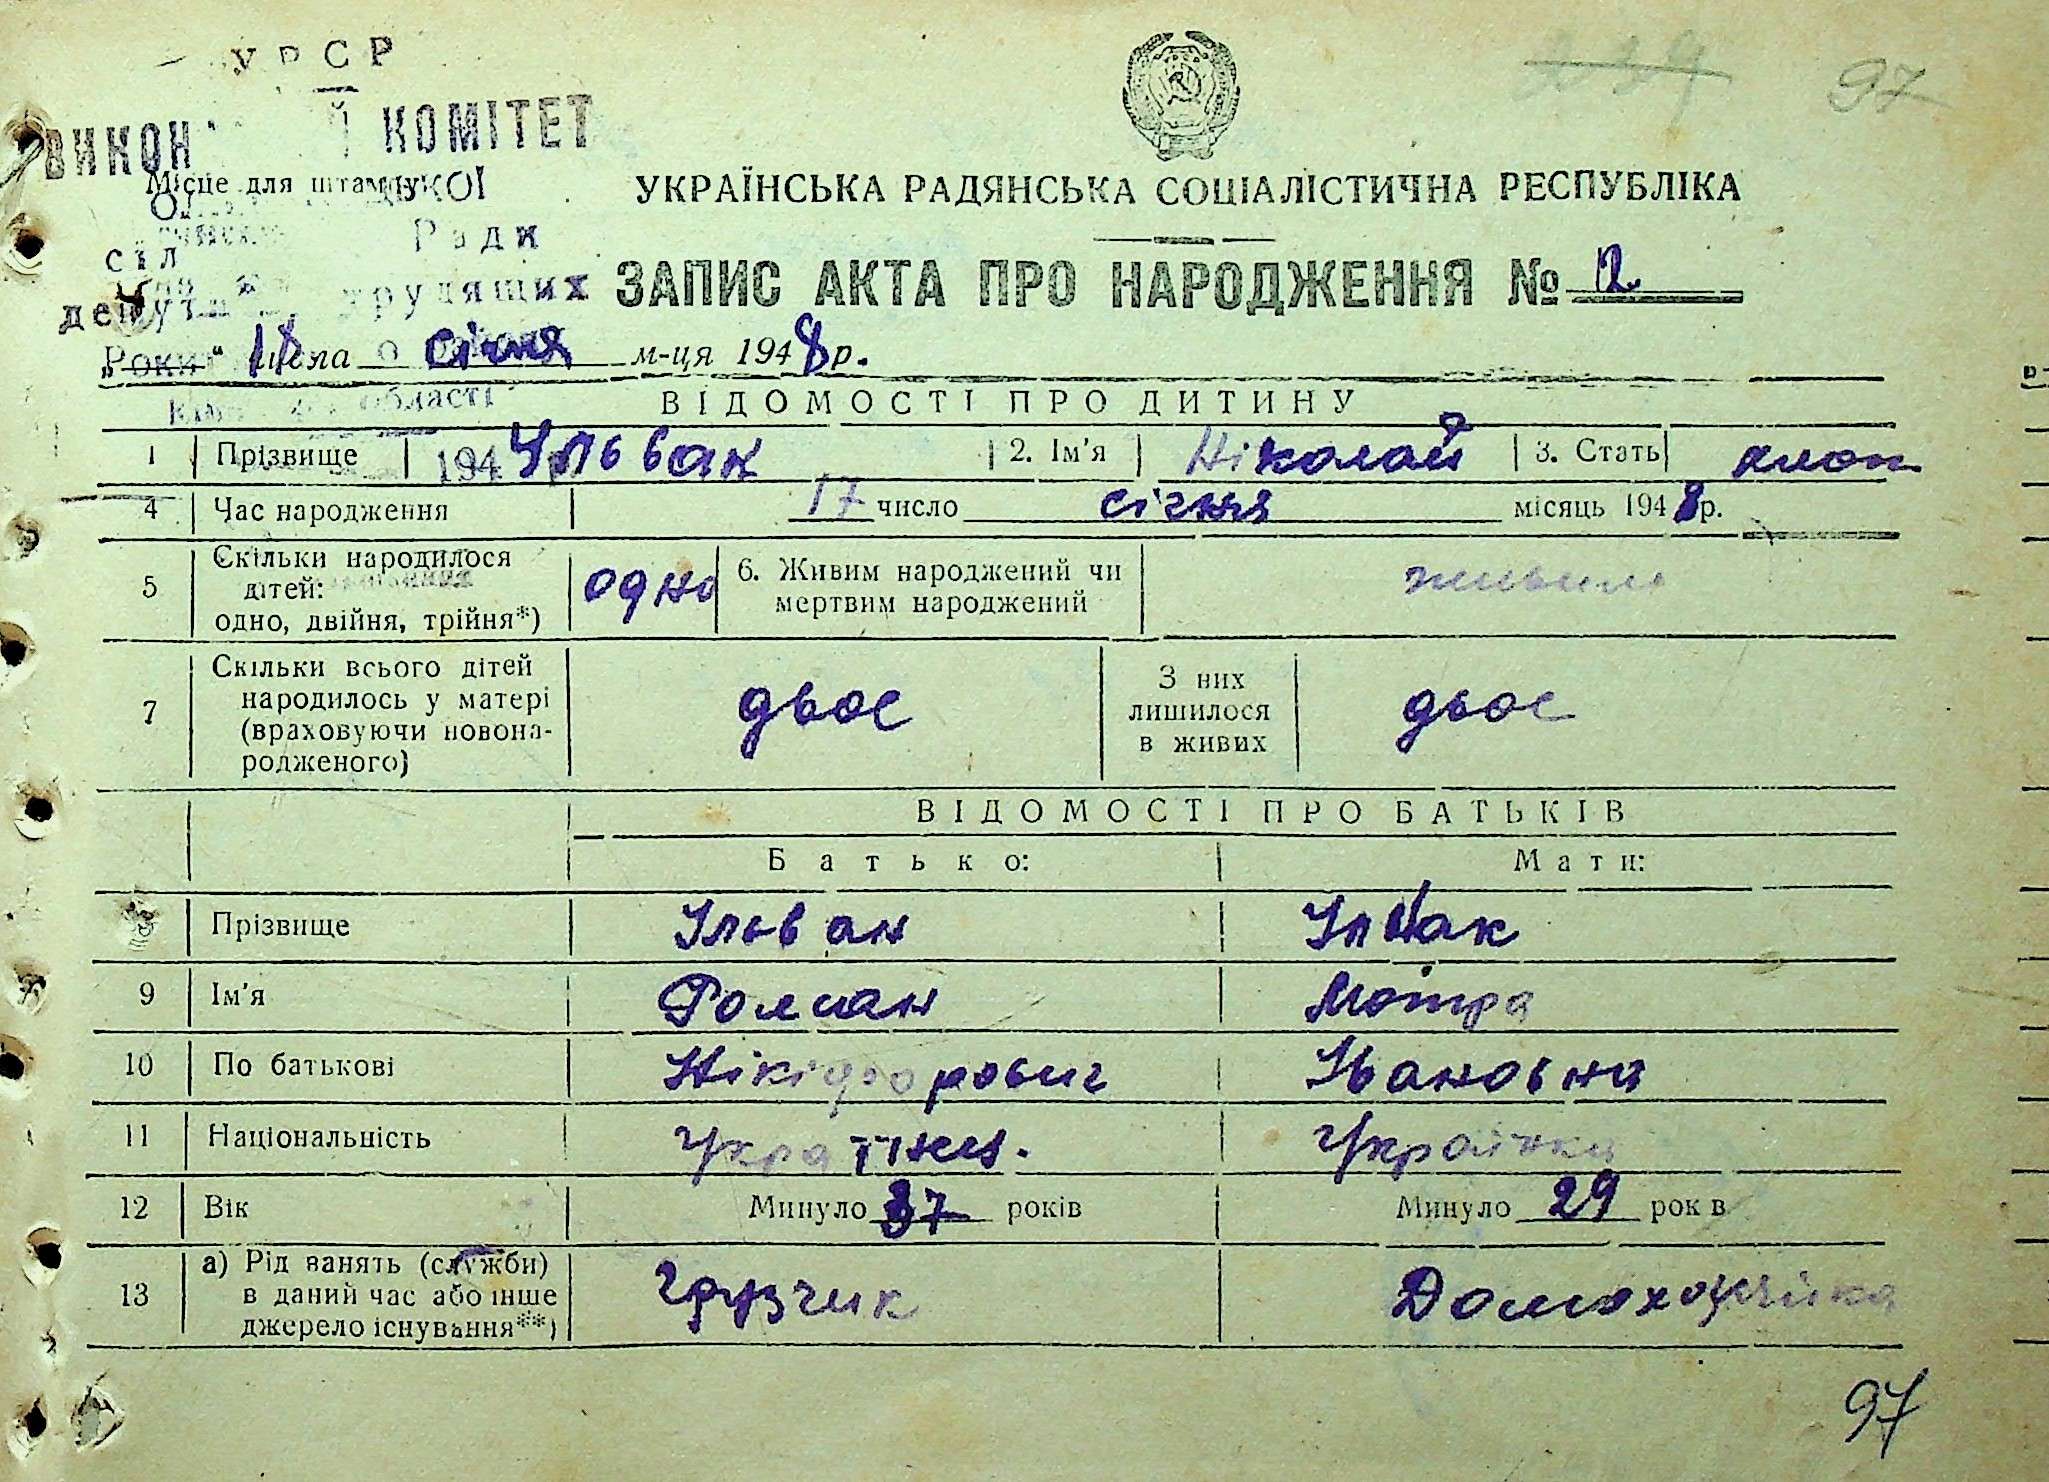 УРСР
КОМІТЕТ
Місце для штампу
Ради
трудящих
97
УКРАЇНСЬКА РАДЯНСЬКА СОЦІАЛІСТИЧНА РЕСПУБЛІКА
ЗАПИС АКТА ПРО НАРОДЖЕННЯ № 12
„18“ числа січня м-ця 1948 р.
області
ВІДОМОСТІ ПРО ДИТИНУ
1 Прізвище Ульвак 2. Ім'я Ніколай 3. Стать хлоп
4 Час народження 17 число січня місяць 1948 р.
5 Скільки народилося дітей: одно, двійня, трійня*) одно 6. Живим народжений чи мертвим народжений живим
7 Скільки всього дітей народилось у матері (враховуючи новонародженого) двоє З них лишилося в живих двоє
ВІДОМОСТІ ПРО БАТЬКІВ
Батько: Мати:
8 Прізвище
9 Ім'я Роман Мотря
10 По батькові Нікіфорович Івановна
11 Національність Україн. Українка
12 Вік Минуло 37 років Минуло 29 рок в
13 а) Рід занять (служби) в даний час або інше джерело існування**) грузчик Домохозяйка
97